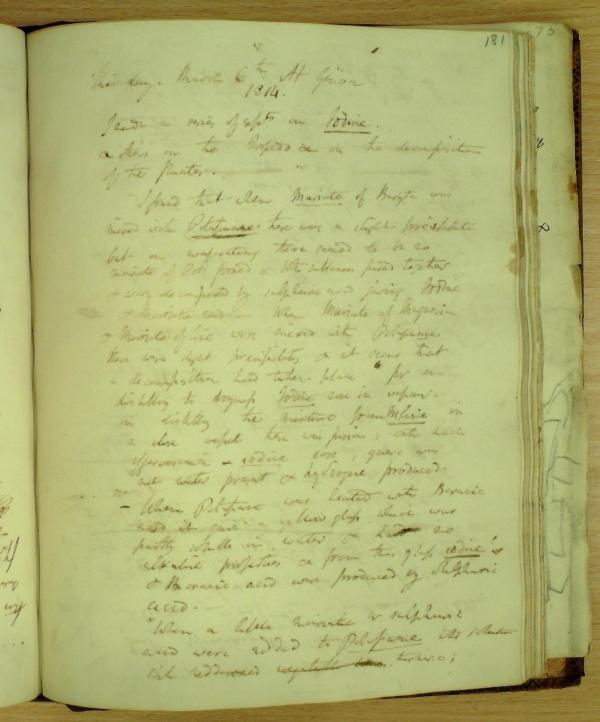 181
75
this day. March 6th At Genoa
1814.
made a series of expts on Iodine.
& others on the Torpedo & on the decomposition
of the fluates.
I found that when Muriate of Baryta was
mixed with there was a slight precipitate
but on evaporating there seemed to be no
muriate of Pot. formed & the substances fused together
& were decomposed by sulphuric acid giving Iodine
& Muriatic acid. When Muriate of Magnesia
& Muriate of lime were mixed with
there were slight precipitates & it seems that
a decomposition had taken place for on
distilling to dryness Iodine rose in vapour.
in distilling the mixture from in
a close vessel there was fusion, with much
effervescence & iodine rose; quere was
not water present & hydrogene produced.
- When was heated with Boracic
acid it gave a yellow glass which was
partly soluble in water & had no
alkaline properties & from this glass iodine
& Boracic acid were produced by Sulphuric
acid.
When a little muriatic or sulphuric
acid were added to its solution
still reddened vegetable turmeric;